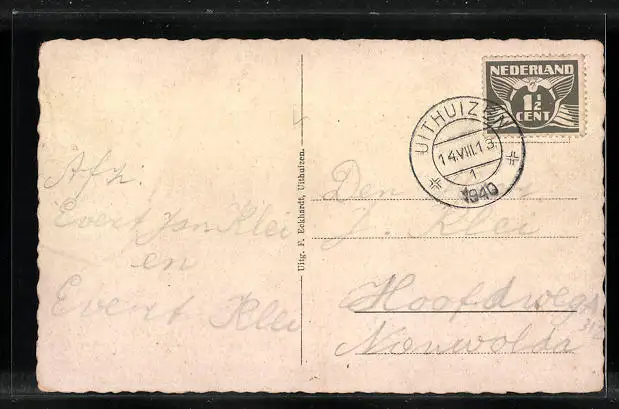 NEDERLAND
1½
CENT
UITHUIZEN
14.VIII.13
1
1940
Uitg. F. Eckhardt, Uithuizen.
Afz:
Evert Jan Klei
en
Evert Klei
Den
J. Klei
Hoofdweg
Nieuwolda